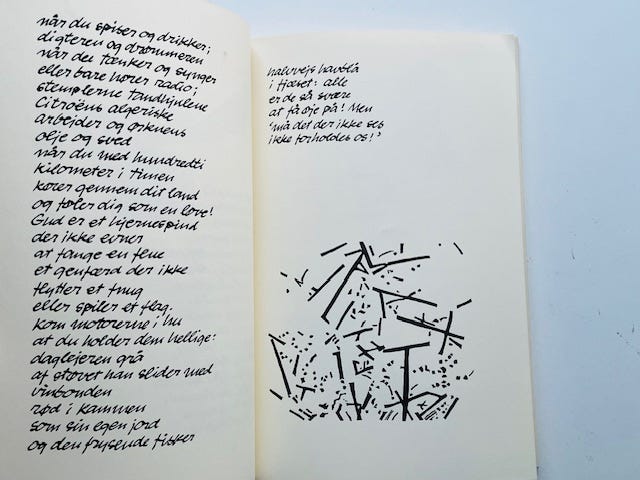 når du spiser og drikker;
digteren og drømmeren
når du tænker og synger
eller bare hører radio;
stemplerne tandhjulene
Citroëns algeriske
arbejder og ørknens
olje og sved
når du med hundredti
kilometer i timen
kører gennem dit land
og føler dig som en løve!
Gud er et hjernespind
der ikke evner
at fange en flue
et genfærd der ikke
flytter et fnug
eller spiler et flag.
kom motorerne i hu
at du holder dem hellige:
daglejeren grå
af støvet han slider med
vinbonden
rød i kammen
som sin egen jord
og den frysende fisker
halvvejs havblå
i fjæset: alle
er de så svære
at få øje på! Men
'må det der ikke ses
ikke forholdes os!'